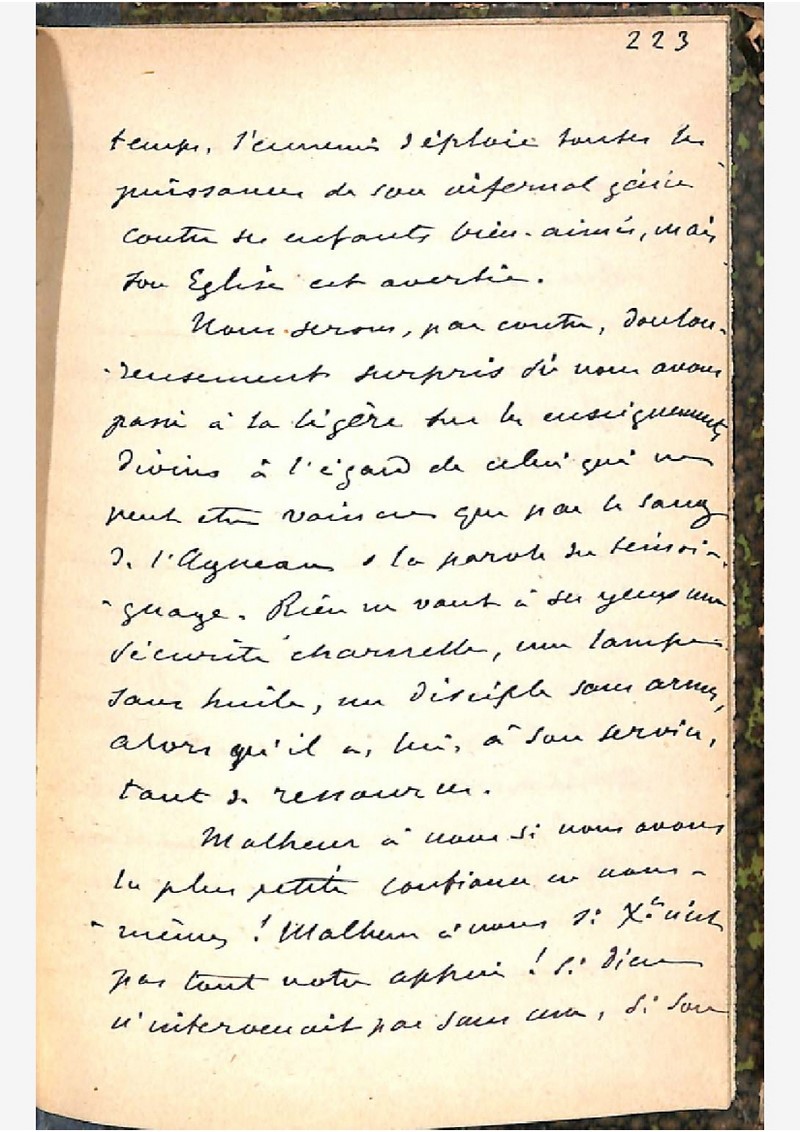 223
temps, l'ennemi déploie toutes les
puissances de son infernal génie
contre ses enfants bien-aimés, mais
son Eglise est avertie.
Nous serons, par contre, doulou-
-reusement surpris si nous avons
passé à la légère sur les enseignements
divins à l'égard de celui qui ne
peut être vaincu que par le sang
de l'Agneau & la parole du témoi-
-gnage. Rien ne vaut à ses yeux une
sécurité charnelle, une lampe
sans huile, un disciple sans armes,
alors qu'il a, lui, à son service,
tant de ressources.
Malheur à nous si nous avons
la plus petite confiance en nous-
-mêmes ! Malheur à nous si Xst n'est
pas tout notre appui ! Si Dieu
n'intervenait pas sans cesse, si son